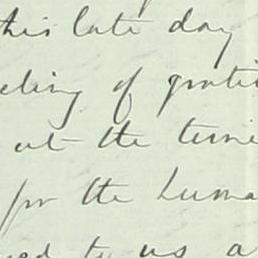 this late day
eling of gratit
at the time
for the huma
ed to us a